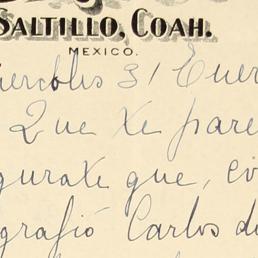 SALTILLO, COAH.
MEXICO.
iercoles 31 Ener
Que te pare
gurate que, co
grafió Carlos de